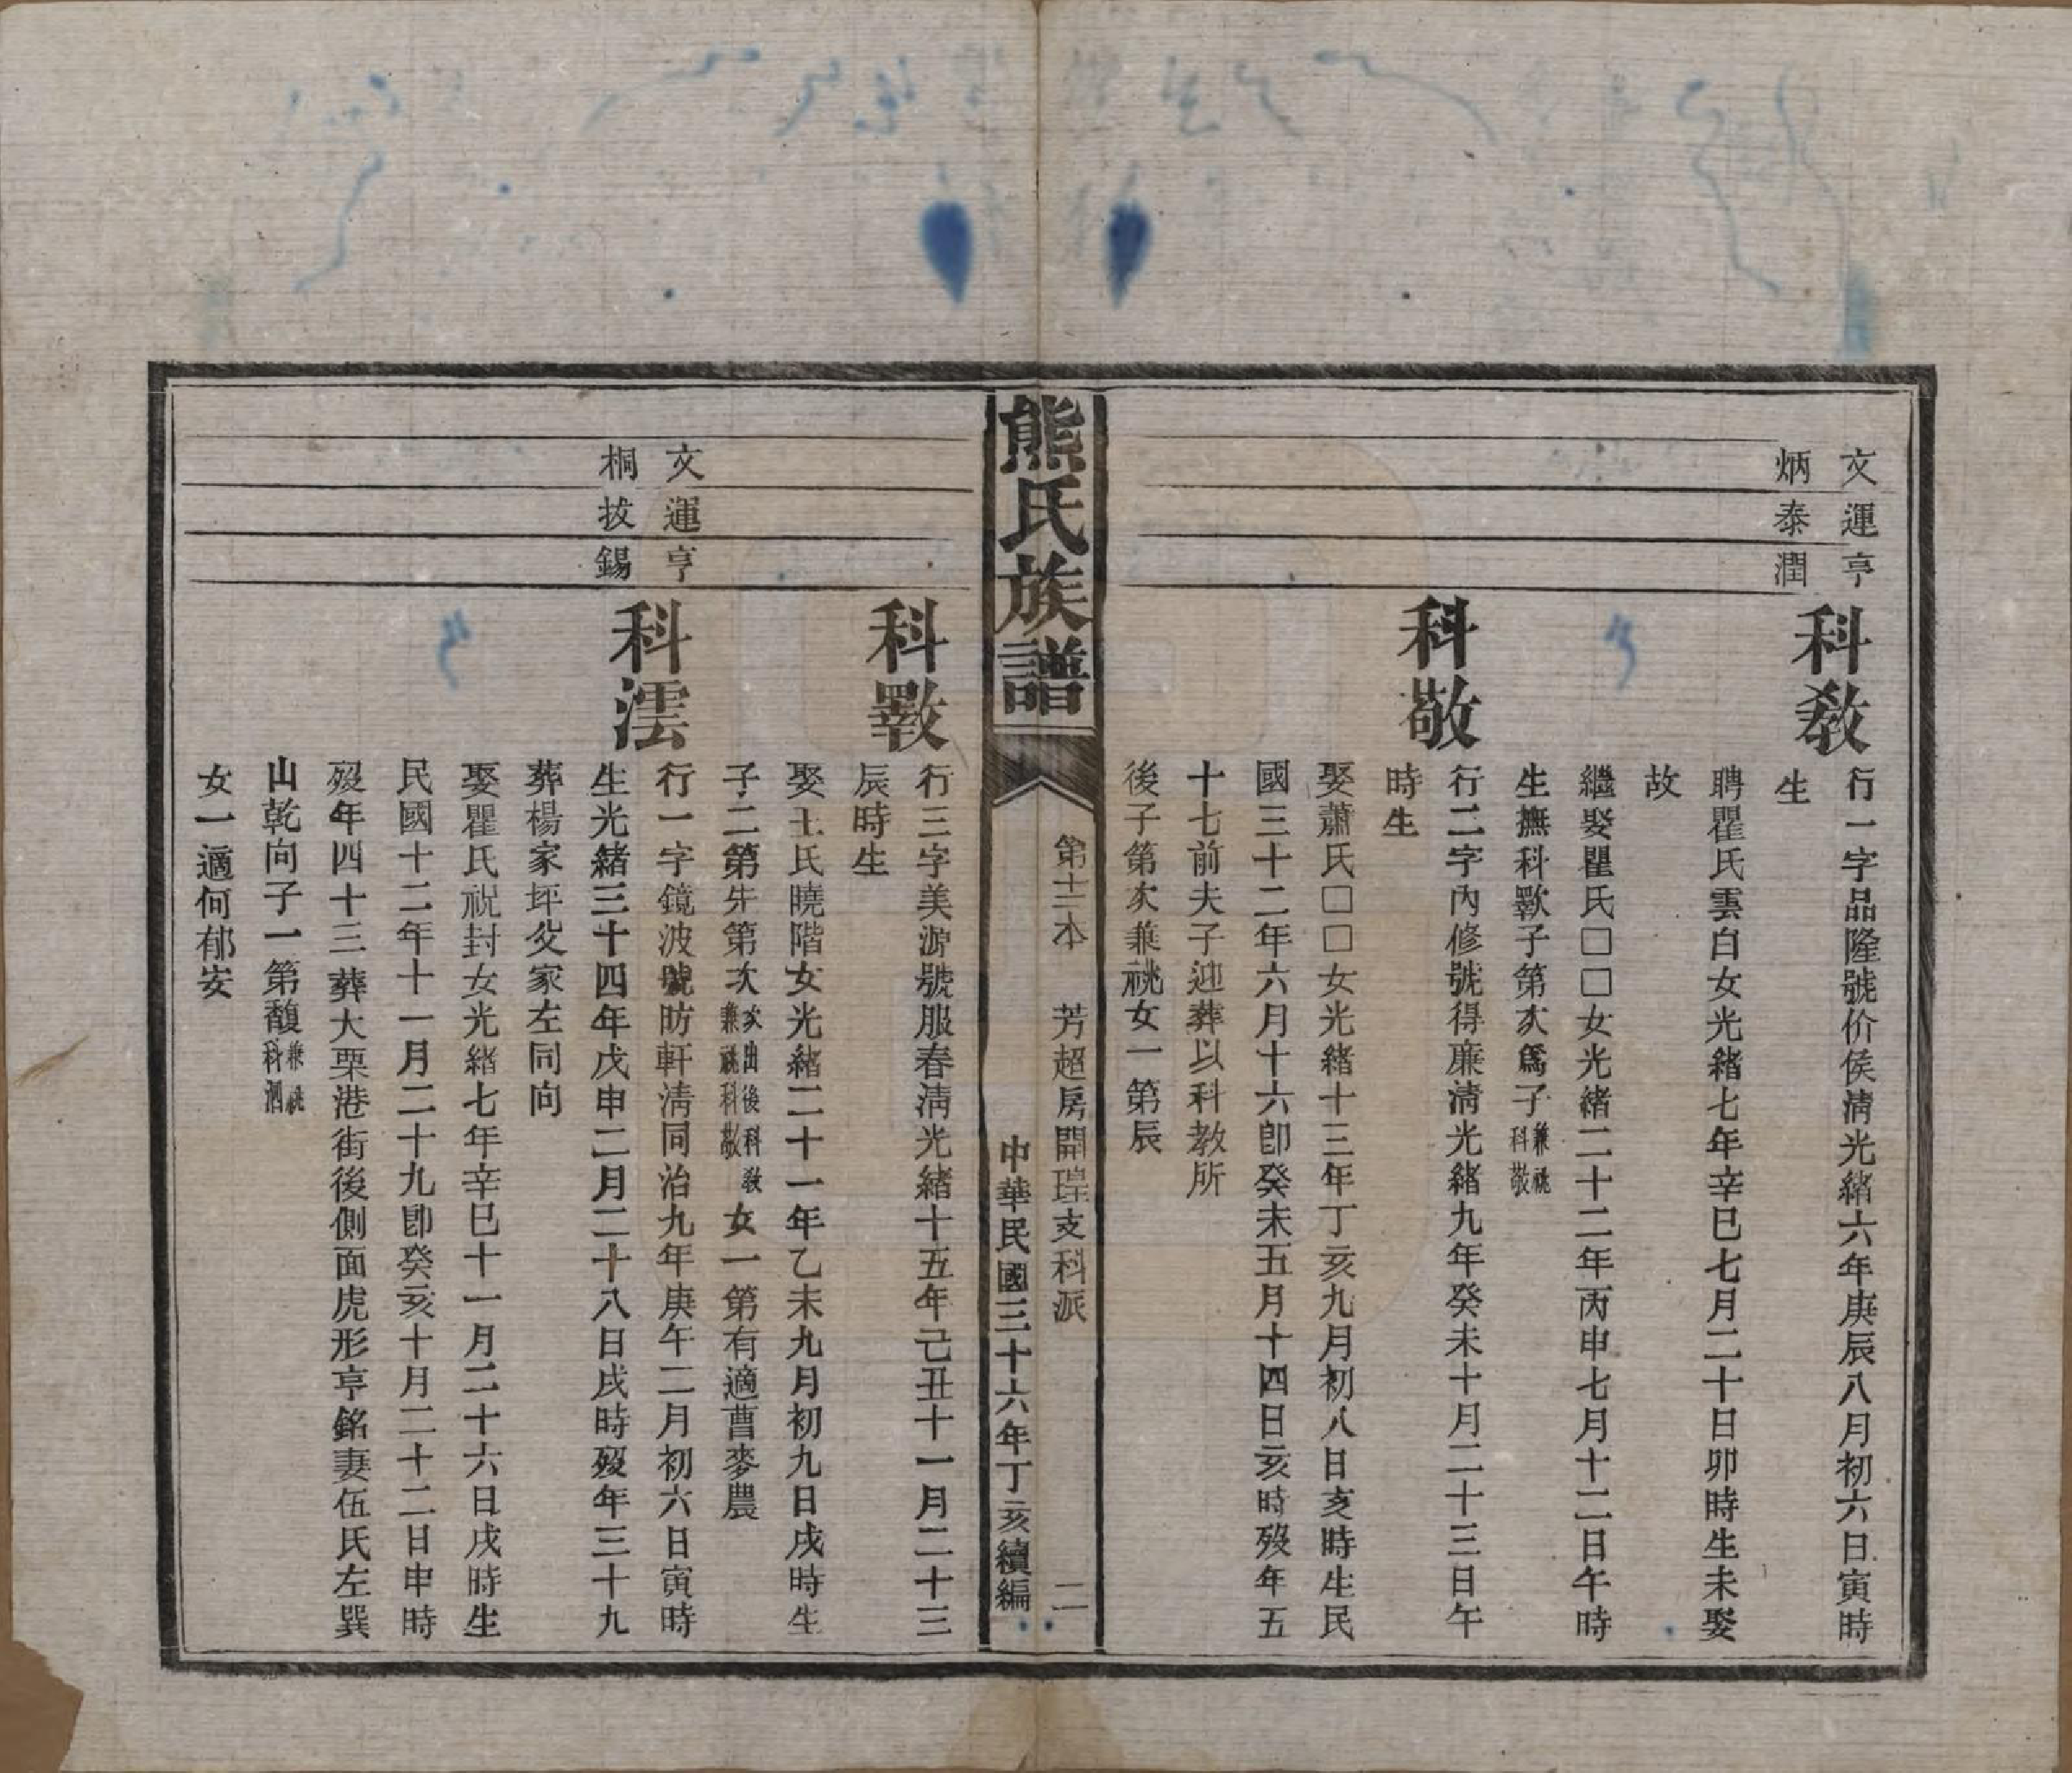 文運亨
炳泰潤
科教
行一字品隆號价侯淸光緒六年庚辰八月初六日寅時
生
聘瞿氏雲白女光緒七年辛巳七月二十日卯時生未娶
故
繼娶瞿氏□□女光緒二十二年丙申七月十二日午時
生撫科斁子第次爲子兼祧科敬
科敬
行二字內修號得廉淸光緒九年癸未十月二十三日午
時生
娶蕭氏□□女光緒十三年丁亥九月初八日亥時生民
國三十二年六月十六卽癸未五月十四日亥時歿年五
十七前夫子迎葬以科教所
後子第次兼祧女一第辰
熊氏族譜
第十三本 芳超房開瑝支科派 二
中華民國三十六年丁亥續編
科斁
行三字美源號服春淸光緒十五年己丑十一月二十三
辰時生
娶王氏曉階女光緒二十一年乙未九月初九日戌時生
子二第先第次次出後科敎兼祧科敬女一第有適曹麥農
文運亨
桐拔錫
科澐
行一字鏡波號昉軒淸同治九年庚午二月初六日寅時
生光緒三十四年戊申二月二十八日戌時歿年三十九
葬楊家坪父冢左同向
娶瞿氏祝封女光緒七年辛巳十一月二十六日戌時生
民國十二年十一月二十九卽癸亥十月二十二日申時
歿年四十三葬大栗港街後側面虎形亨銘妻伍氏左巽
山乾向子一第馥兼祧科泗
女一適何郁安